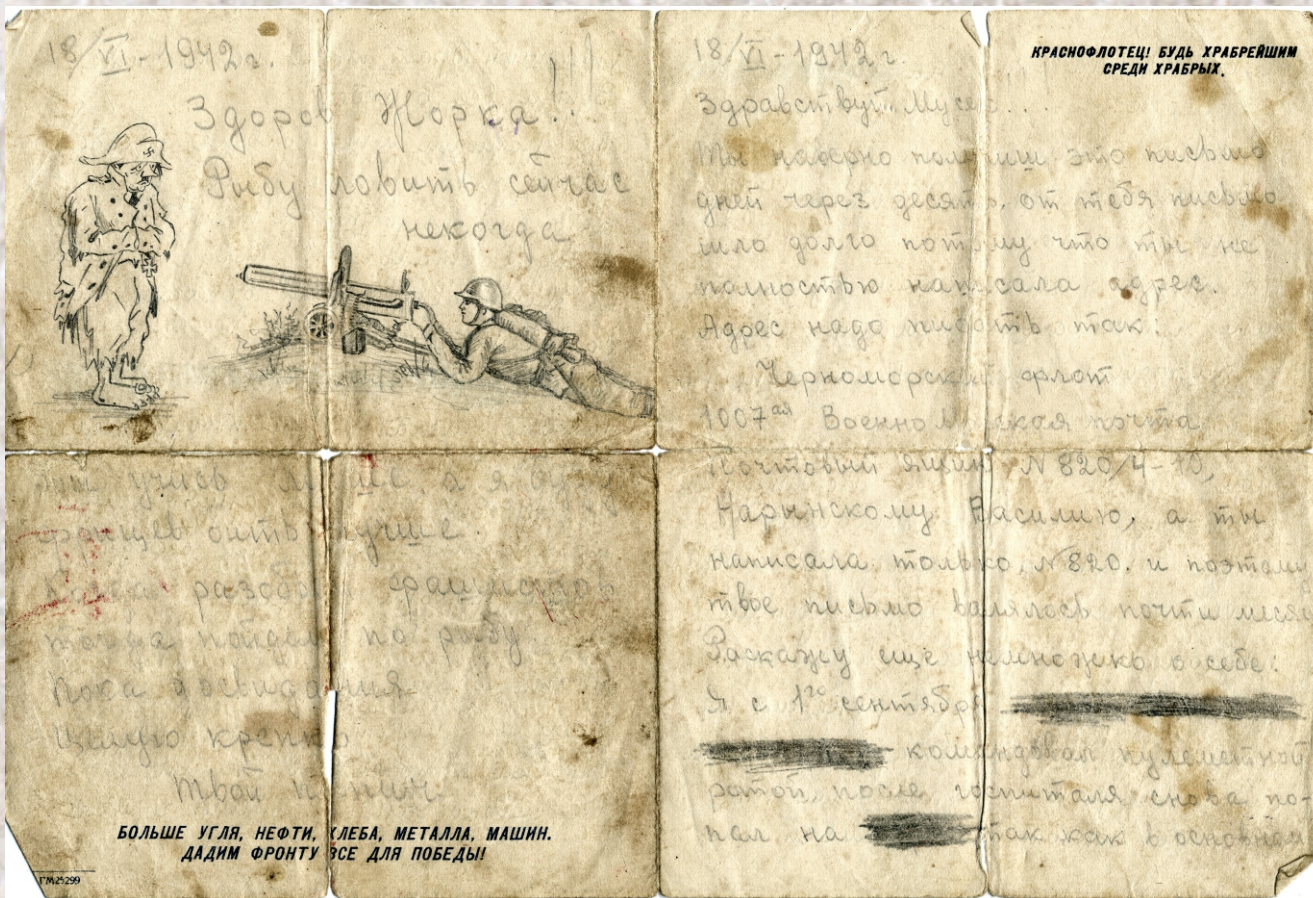 18/VI-1942 г.
Здоров Жорка!!!
Рыбу ловить сейчас
некогда
учись а я
лучше.
фашистов
тогда пойдем по рыбу.
Пока досвидания
Целую крепко
Твой
БОЛЬШЕ УГЛЯ, НЕФТИ, ХЛЕБА, МЕТАЛЛА, МАШИН.
ДАДИМ ФРОНТУ ВСЕ ДЛЯ ПОБЕДЫ!
ГМ25299
КРАСНОФЛОТЕЦ! БУДЬ ХРАБРЕЙШИМ
СРЕДИ ХРАБРЫХ.
18/VI-1942 г.
Здравствуй Мусек!...
Ты наверно получиш это письмо
дней через десять. от тебя письмо
шло долго потому что ты не
полностью написала адрес.
Адрес надо писать так:
Черноморский флот
1007ая Военно Морская почта
Почтовый ящик N 820/4-10,
Нарынскому Василию, а ты
написала только N 820. и поэтому
твое письмо валялось почти месяц
Раскажу еще немножко о себе:
Я с 1го сентября
командовал пулеметной
ротой, после госпиталя снова по-
пал на так как в основном